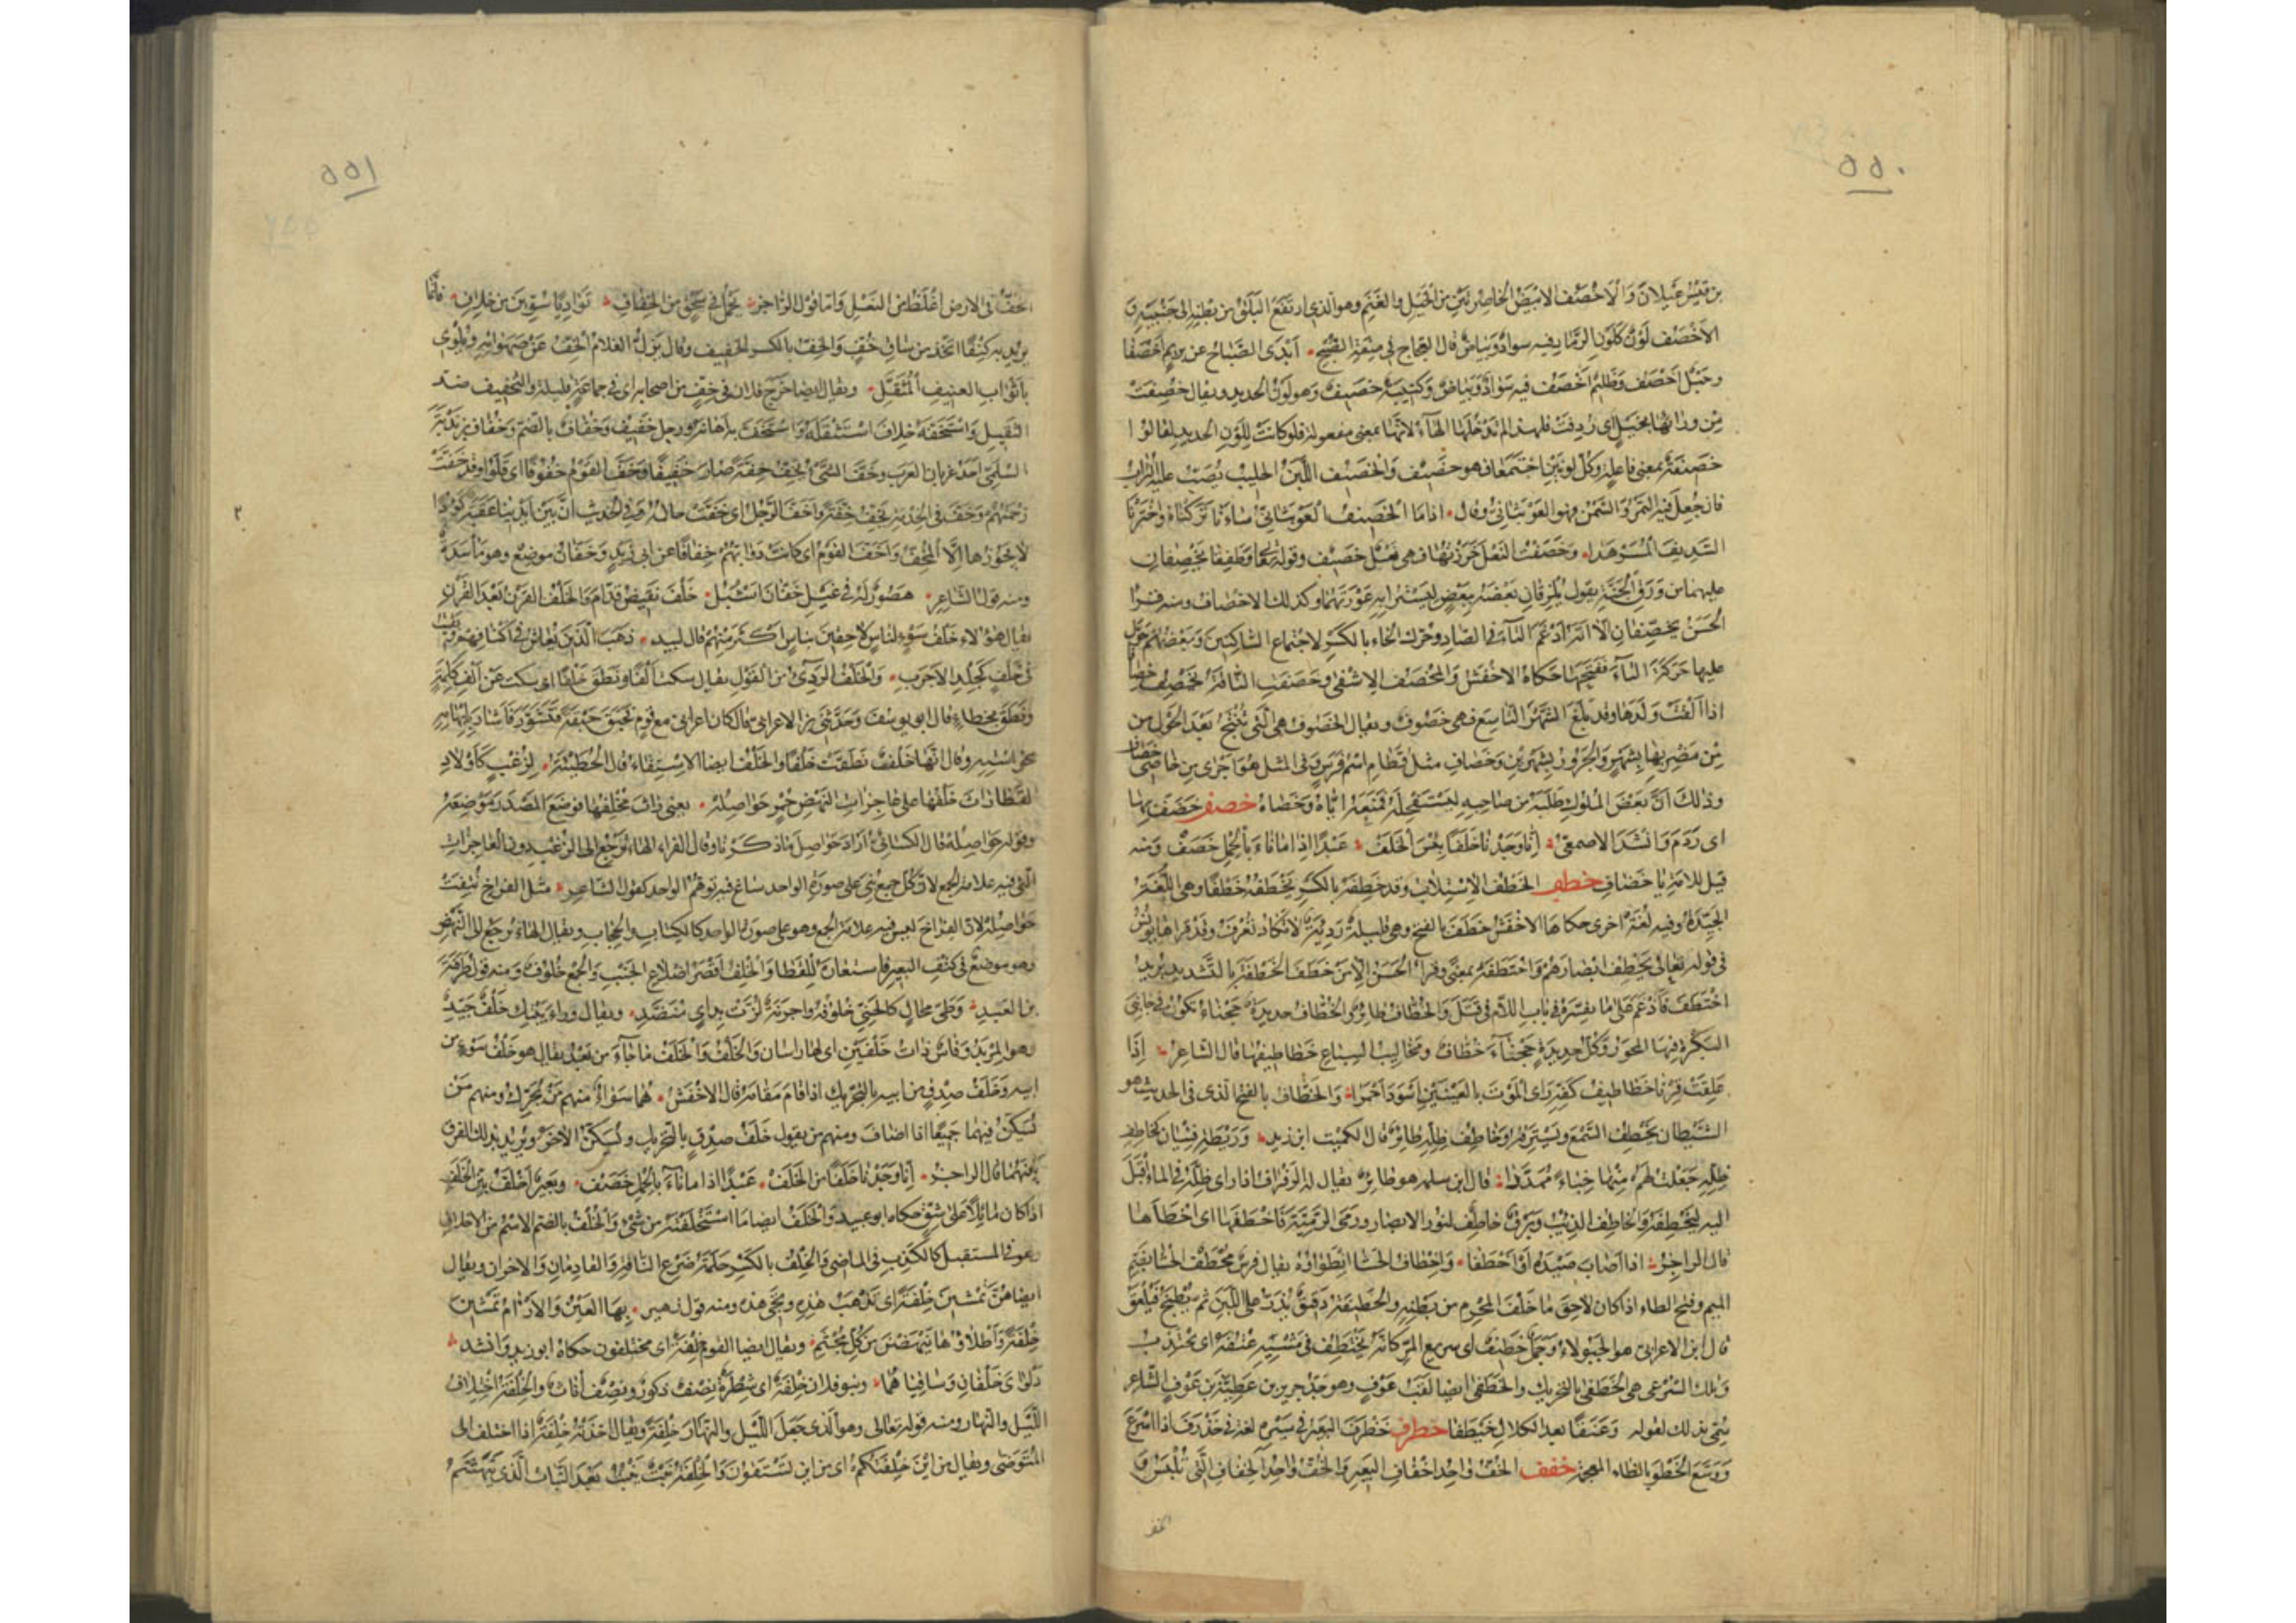 ٥٥٠
بن قيس عيلان والاخصف الابيض الخاصرتين من الخيل والغنم وهو الذي ارتفع البلق من بطنه الى جنبيه و
الاخصف لون كلون الرماد فيه سواد وبياض قال العجاج في صفة الصبح ابدى الصباح عن بريم اخصفا
وحبل اخصف وظليم اخصف فيه سواد وبياض وكتيبة خصيف وهو لون الحديد ويقال خصفت
من ورائها بخيل اى ردفت فلهذا لم تدخلها الهاء لانها بمعنى مفعولة فلو كانت للون الحديد لقالوا
خصيفة بمعنى فاعلة وكل لونين اجتمعا فهو خصيف والخصيف اللبن الحليب يصب عليه الرائب
فان جعل فيه التمر والسمن فهو العوبثانى وقال اذا ما الخصيف العوبثانى ساءنا تركناه واخترنا
السديف المسرهدا وخصفت النعل خرزتها فهى نعل خصيف وقوله تعالى وطفقا يخصفان
عليهما من ورق الجنة يقول يلزقان بعضه ببعض ليسترا به عورتهما وكذلك الاختصاف ومنه قرأ
الحسن يخصفان الا انه ادغم التاء فى الصاد وحرك الخاء بالكسر لاجتماع الساكنين وبعضهم حول
عليها حركة التاء ففتحها حكاه الاخفش والمخصف الاشفى وخصفت الناقة تخصف خصافا
اذا القت ولدها وقد بلغ الشهر التاسع فهى خصوف ويقال الخصوف هى التى تنتج بعد الحول من
من مضربها بشهر والجرور بشهرين وخصاف مثل قطام اسم فرس وفى المثل هو اجرى من خاصى خصاف
وذلك ان بعض الملوك طلبه من صاحبه ليستفحله فمنعه اياه وخصاه خضف خضف بها
اى ردم وانشد الاصمعى انا وجدنا خلفا بئس الخلف عبدا اذا ما ناء بالحمل خضف ومنه
قيل للامة يا خضاف خطف الخطف الاستلاب وقد خطفه بالكسر يخطفه خطفا وهى اللغة
الجيدة وفيه لغة اخرى حكاها الاخفش خطف بالفتح وهى قليلة رديئة لا تكاد تعرف وقد قرأ بها يونس
فى قوله تعالى يخطف ابصارهم واختطفه بمعنى وقرأ الحسن الا من خطف الخطفة بالتشديد يريد
اختطف فادغم على ما نفسره فى باب اللام فى قتل والخطاف طائر والخطاف حديدة حجناء تكون فى جانبى
البكرة فيها المحور وكل حديدة حجناء خطاف ومخاليب السباع خطاطيفها قال الشاعر اذا
علقت قرنا خطاطيف كفه رأى الموت بالعينين اسود احمرا والخطاف بالفتح الذى فى الحديث هو
الشيطان يخطف السمع ويسترقه وخاطف ظله طائر قال الكميت ابن زيد وريطة فتيان كخاطف
ظله جعلت لهم منها خباء ممددا قال ابن سلمة هو طائر يقال له الرفراف اذا رأى ظله فى الماء اقبل
اليه ليخطفه والخاطف الذئب وبرق خاطف لنور الابصار ورمى الرمية فاخطفها اى اخطأها
قال الراجز اذا اصاب صيده او اخطفا واخطاف الحشا انطواؤه يقال فرس مخطف الحشا بضم
الميم وفتح الطاء اذا كان لاحق ما خلف المحزم من بطنه والخطيفة دقيق يذر على اللبن ثم يطبخ فيلعق
قال ابن الاعرابى هو الجبولاء وجمل خطيف اى سريع المر كانه يختطف فى مشيه عنقه اى يجتذب
وتلك السرعى هى الخطفى بالتحريك والخطفى ايضا لقب عوف وهو جد جرير بن عطية بن عوف الشاعر
سمى بذلك لقوله وعنقا بعد الكلال خيطفا خطرف خطرف البعير فى سيره لغة فى خذرف اذا اسرع
ووسع الخطو بالظاء المعجمة خفف الخف واحد اخفاف البعير والخف واحد الخفاف التى تلبس و
الخف
٥٥١
الخف فى الارض اغلظ من النعل واما قول الراجز يحمل فى سحق من الخفاف تواديا سوين من خلاف فانما
يريد به كنيفا اتخذ من ساق خف والخف بالكسر الخفيف وقال يزل الغلام الخف عن صهواته ويلوى
باثواب العنيف المثقل ويقال ايضا خرج فلان فى خف من اصحابه اى فى جماعة قليلة والتخفيف ضد
التثقيل واستخفه خلاف استثقله واستخف به اهانه ورجل خفيف وخفاف بالضم وخفاف بن ندبة
السلمى احد غربان العرب وخف الشئ يخف خفة صار خفيفا وخف القوم خفوفا اى قلوا وقد خفت
زحمتهم وخف فى الخدمة يخف خفة واخف الرجل اى خفت حاله وفى الحديث ان بين ايدينا عقبة كؤودا
لا يجوزها الا المخف واخف القوم اى كانت دوابهم خفافا عن ابى زيد وخفان موضع وهو مأسدة
ومنه قول الشاعر هصور له فى غيل خفان اشبل خلف نقيض قدام والخلف القرن بعد القرن
يقال هؤلاء خلف سوء لناس لاحقين بناس اكثر منهم قال لبيد ذهب الذين يعاش فى اكنافهم وبقيت
فى خلف كجلد الاجرب والخلف الردئ من القول يقال سكت الفا ونطق خلفا اى سكت عن الف كلمة
ونطق بخطاء قال ابو يوسف وحدثنى ابن الاعرابى قال كان اعرابى مع قوم فحبق حبقة فتشور فاشار بابهامه
نحو استه وقال انها خلف نطقت خلفا والخلف ايضا الاستقاء قال الحطيئة لزغب كاولاد
القطا راث خلفها على عاجزات النهض حمر حواصله يعنى راث مخلفها فوضع المصدر موضعه
وقوله حواصله قال الكسائى اراد حواصل ما ذكرنا وقال الفراء الهاء ترجع الى الزغب دون العاجزات
التى فيه علامة الجمع لان كل جمع بنى على صورة الواحد ساغ فيه توهم الواحد كقول الشاعر مثل الفراخ نتفت
حواصله لان الفراخ ليس فيه علامة الجمع وهو على صورة الواحد كالكتاب والحجاب ويقال الهاء ترجع الى النهض
وهو موضع فى كتف البعير فاستعاره للقطا والخلف اقصر اضلاع الجنب والجمع خلوف ومنه قول طرفة
بن العبد وطى محال كالحنى خلوفه واجرنة لزت بدأى منضد ويقال وراء بيتك خلف جيد
وهو المربد وفاس ذات خلفين اى لها راسان والخلف والخلف ما جاء من بعد يقال هو خلف سوء من
ابيه وخلف صدق من ابيه بالتحريك اذا قام مقامه قال الاخفش هما سواء منهم من يحرك ومنهم من
يسكن فيهما جميعا اذا اضاف ومنهم من يقول خلف صدق بالتحريك ويسكن الاخر ويريد بذلك الفرق
بينهما قال الراجز انا وجدنا خلفا بئس الخلف عبدا اذا ما ناء بالحمل خضف وبعير اخلف بين الخلف
اذا كان مائلا على شق حكاه ابو عبيد والخلف ايضا ما استخلفته من شئ والخلف بالضم الاسم من الاخلاف
وهو فى المستقبل كالكذب فى الماضى والخلف بالكسر حلمة ضرع الناقة والقادمان والاخران ويقال
ايضا هن يمشين خلفة اى تذهب هذه وتجئ هذه ومنه قول زهير بها العين والارآم يمشين
خلفة واطلاؤها ينهضن من كل مجثم ويقال ايضا القوم خلفة اى مختلفون حكاه ابو زيد وانشد
دلواى خلفان وساقياهما وبنو فلان خلفة اى شطرة نصف ذكور ونصف اناث والخلفة اختلاف
الليل والنهار ومنه قوله تعالى وهو الذى جعل الليل والنهار خلفة ويقال اخذته خلفة اذا اختلف الى
المتوضى ويقال من اين خلفتكم اى من اين تستقون والخلفة نبت ينبت بعد النبات الذى يتهشم